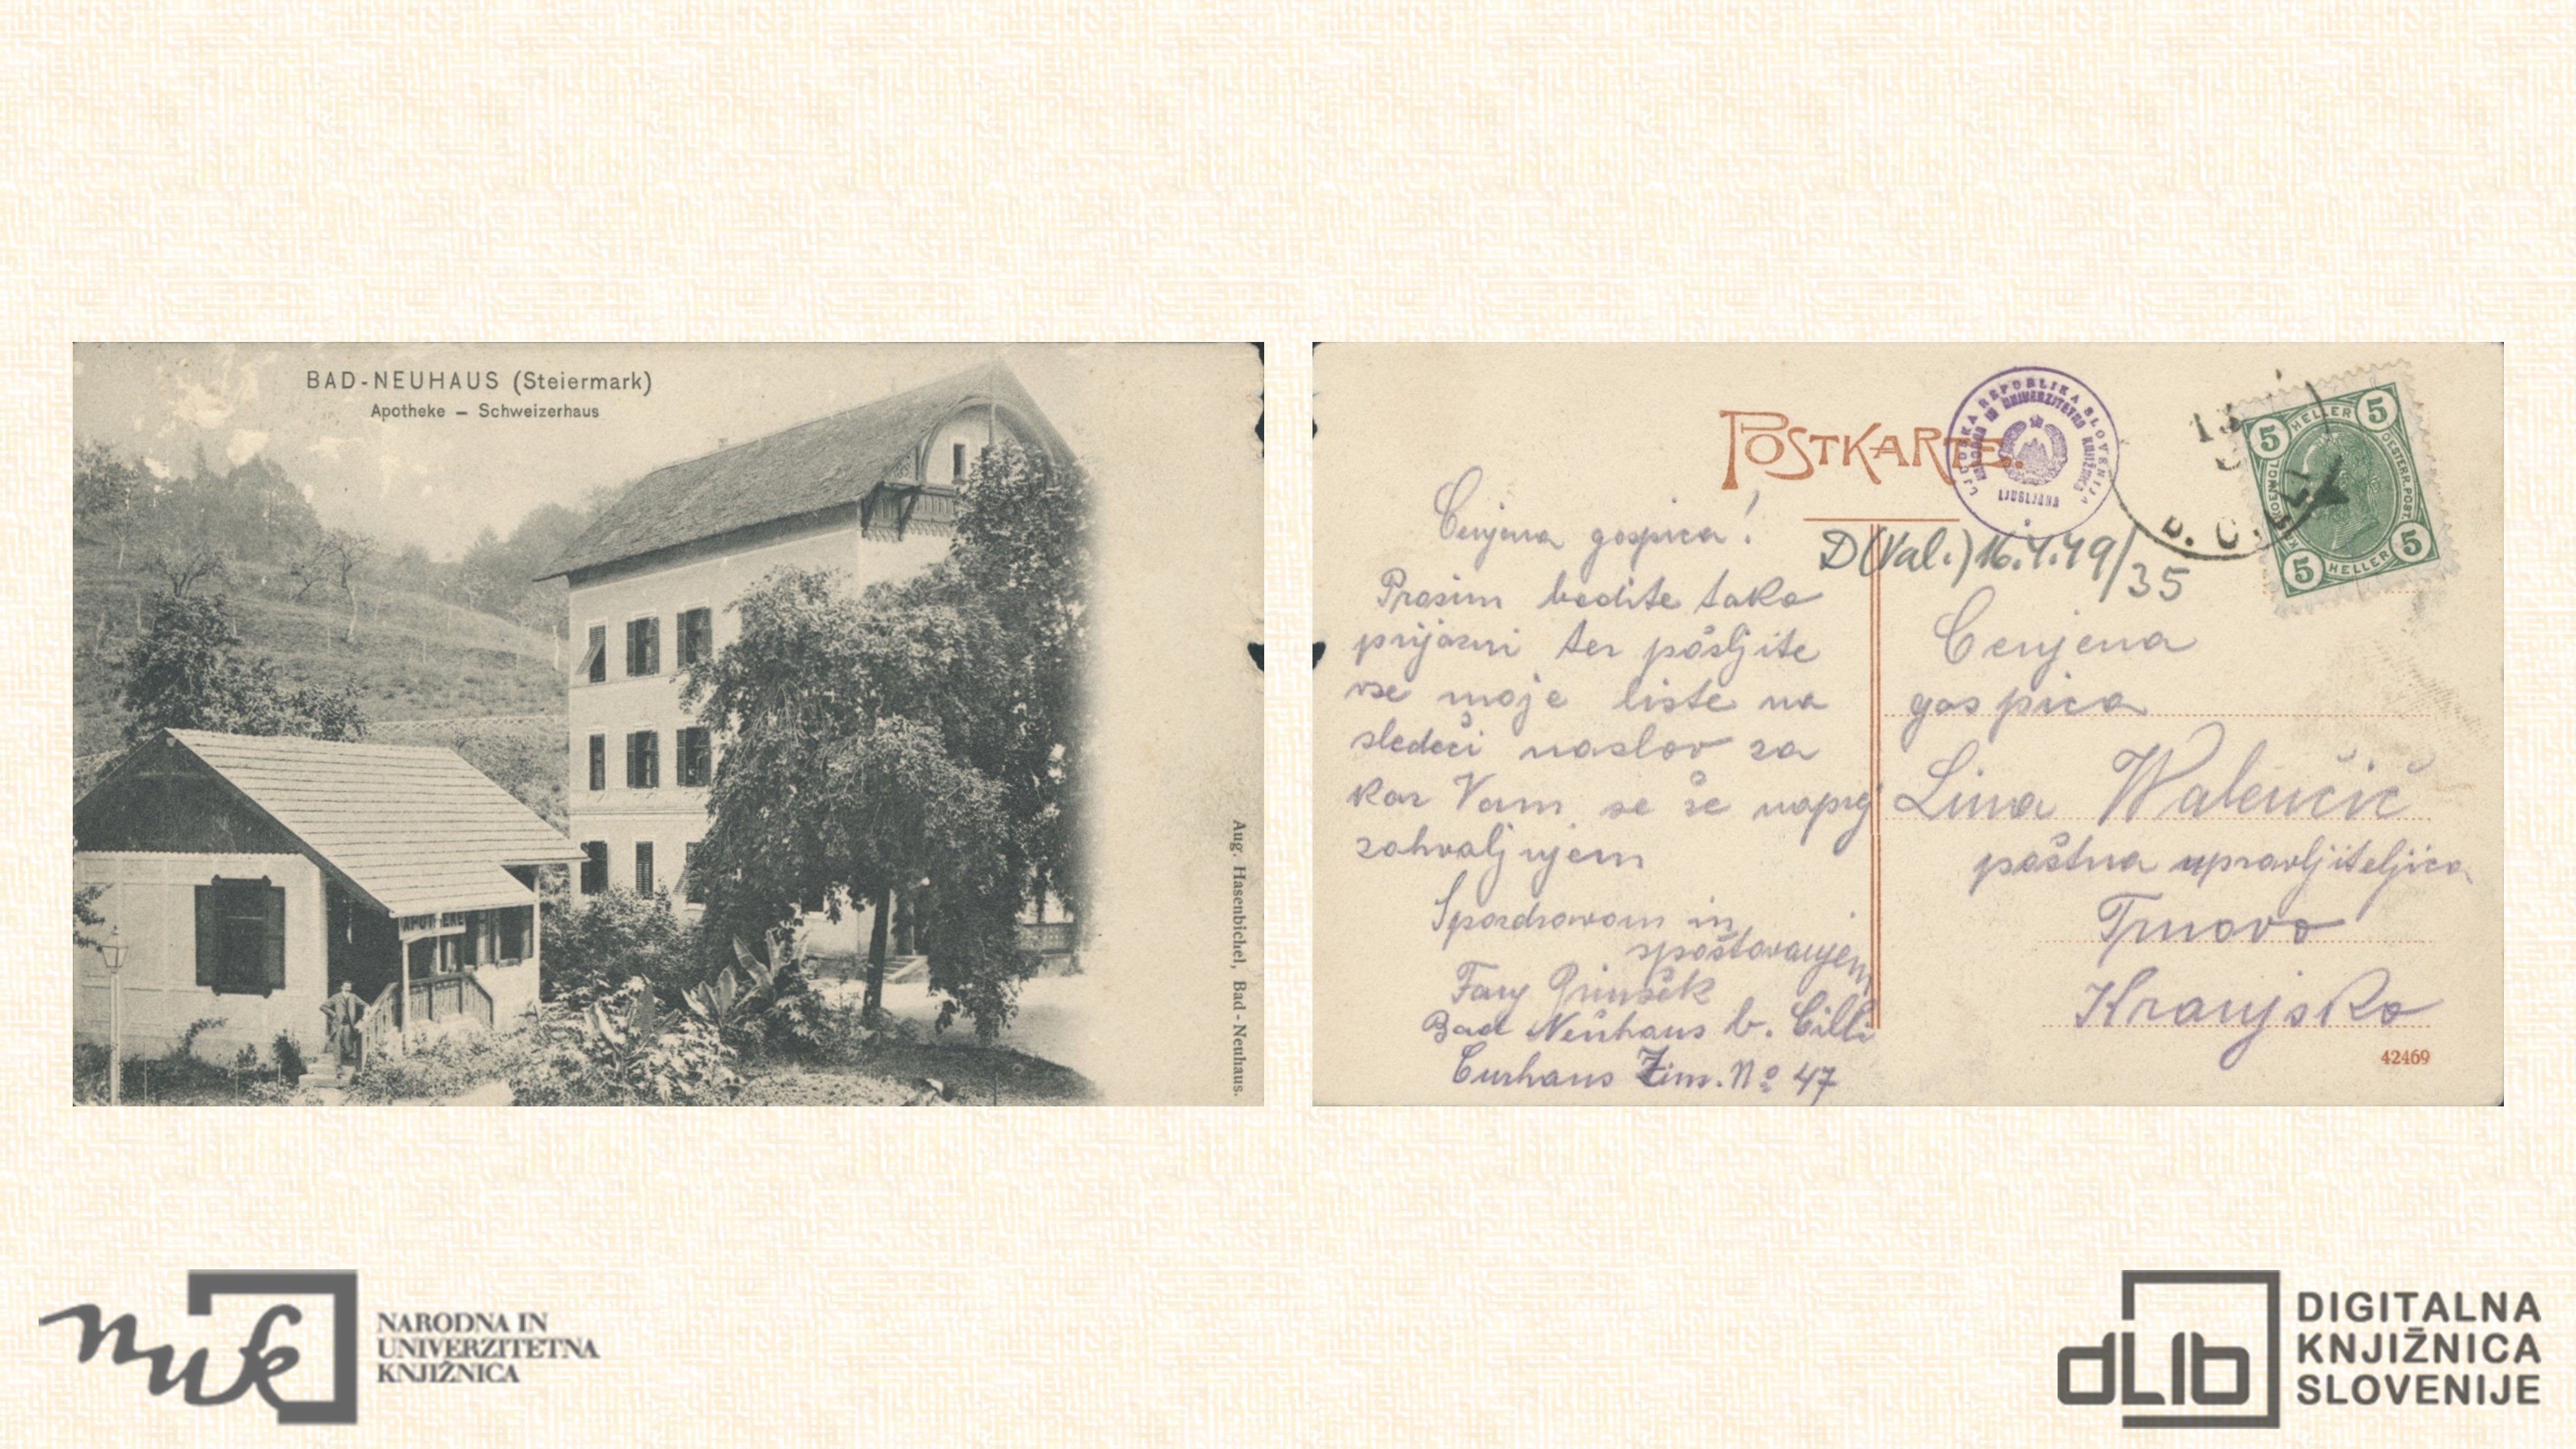 BAD-NEUHAUS (Steiermark)
Apotheke – Schweizerhaus
APOTHEKE
Aug. Hasenbichel, Bad-Neuhaus.
POSTKARTE.
LJUDSKA REPUBLIKA SLOVENIJA
NARODNA IN UNIVERZITETNA KNJIŽNICA
LJUBLJANA
5 HELLER 5
5 HELLER 5
D(Val.) 16.4.49/35
Cenjena gospica!
Prosim bodite tako
prijazni ter pošljite
vse moje liste na
sledeči naslov za
kar Vam se še naprej
zahvaljujem
Spozdravom in
spoštovanjem
Fany
Bad Neuhaus b. Cilli
Curhaus Zim. No 47
Cenjena
gospica
Lina Walenčič
poštna upravljiteljica
Trnovo
Kranjsko
42469
nuk
NARODNA IN
UNIVERZITETNA
KNJIŽNICA
dLib
DIGITALNA
KNJIŽNICA
SLOVENIJE